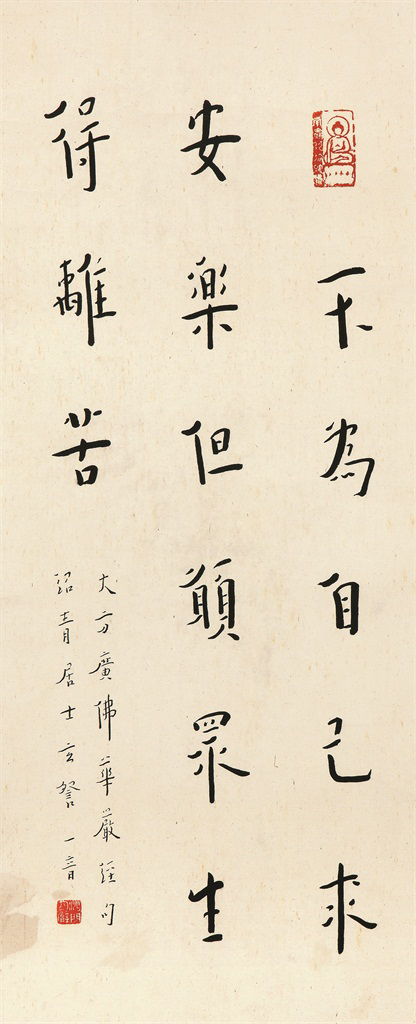 不為自己求
安樂但願眾生
得離苦
大方廣佛華嚴經句
紹青居士玄詧 一音